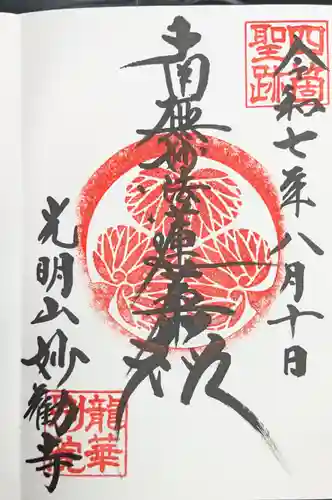 四箇
聖跡
令和七年八月十日
南無妙法蓮華経
光明山妙勸寺
龍華
別院